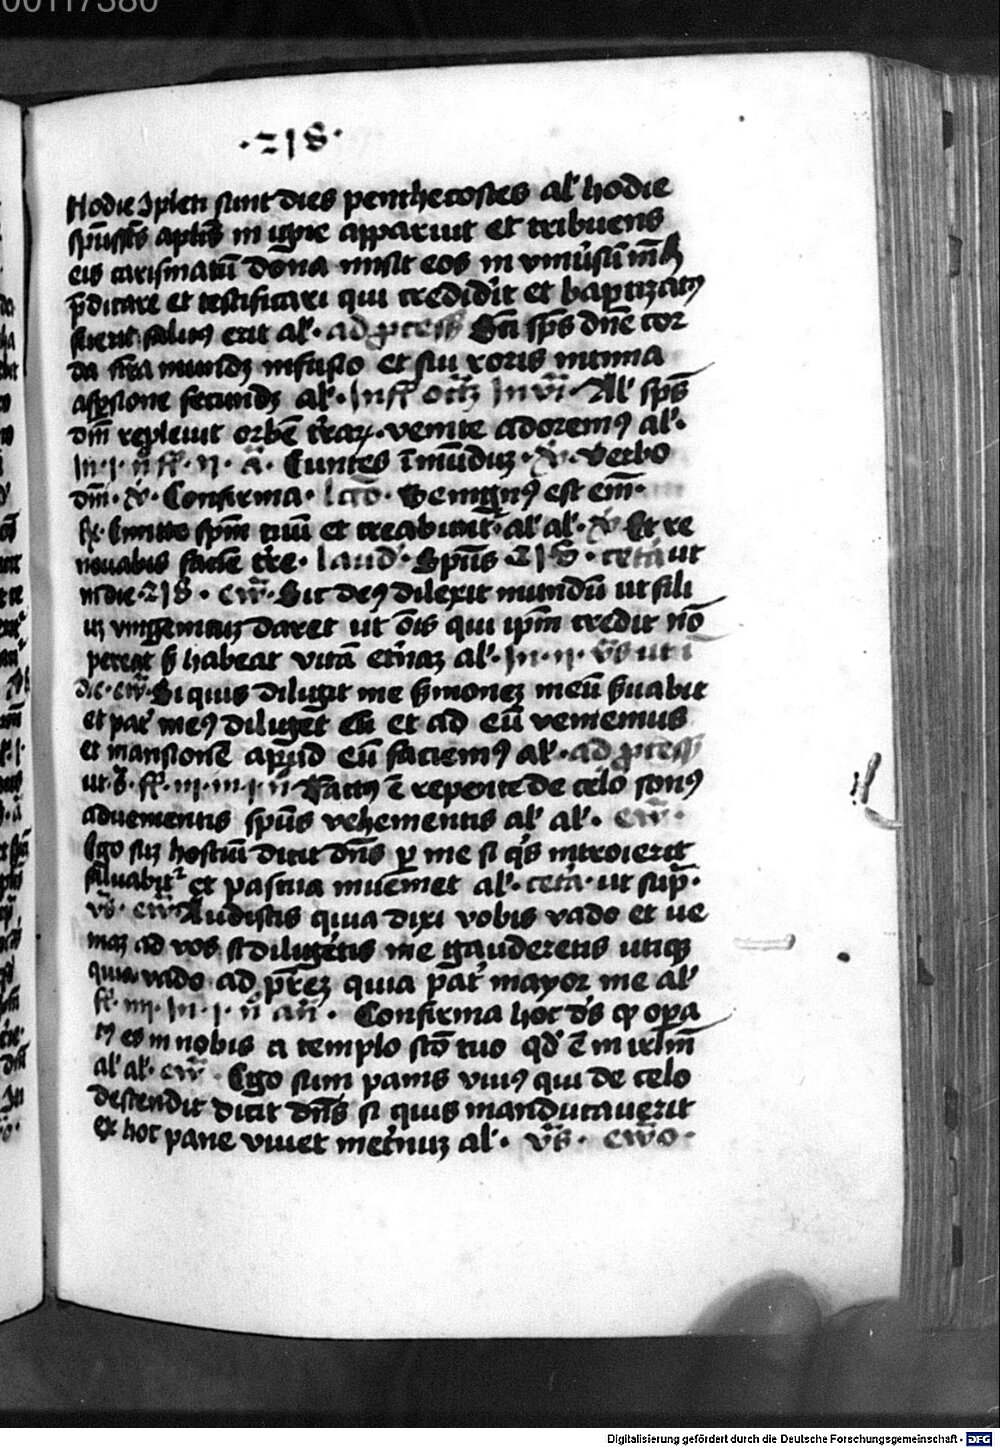 00117380
·218·
Hodie ɔpleti sunt dies penthecostes al' hodie
spūsscs aplis in igne apparuit et tribuens
eis carismatū dōna misit eos in vniũsū mūdū
p̄dicare et testificari qui credidit et baptizatꝰ
fuerit saluꝰ erit al'· ad ꝓcess Scī sp̄s dn̄e cor
da nr̄a mundꝫ infusio et sui roris intima
asp̄sione fecundꝫ al'· In ff octꝫ In vi Al' sp̄s
dn̄i repleuit orbē tr̄aꝝ· venite adoremꝰ al'·
In · i · n̄ ff · ii · ā· Euntes ī mūduꝫ · ℣· Verbo
dn̄i · ℣· Confirma · lc̄o· Benignꝰ est em̄
℟· Emitte spm̄ tuū et creabunt̄ al' al' ℣ Et re
nouabis faciē tr̄e· laud· Spūs 218 · ceta ut
in die 218 · ew̄· Sic deꝰ dilexit mundū ut fili
uꝫ vnigenituꝫ daret ut ōis qui ip̄m credit nō
pereat ß habeat vitā et̄naꝫ al'· In · ii · v̄s ut i
die · ew̄· Si quis diligit me ßmoneꝫ meū ßuabit
et pat̄ meꝰ diliget eū et ad eū veniemus
et mansionē apud eū faciemꝰ al'· ad ꝓcess
ut · s · ff · iii · in · i · n̄ Factꝰ ē repente de celo sonꝰ
aduenientis spūs vehementis al' al'· ew̄·
Ego suꝫ hostiū dicit dn̄s ꝑ me si q's introierit
saluabit̄ et pascua inueniet al'· ceta · ut sup̄·
v̄s · ew̄ Audistis quia dixi vobis vado et ve
niaꝫ ad vos si diligetis me gauderetis utiqꝫ
quia vado ad p̄reꝫ quia pat̄ mayor me al'
ff· iiii · In · i · n̄ añ · Confirma hoc d's qꝫ opa
tꝰ es in nobis a templo scō tuo qd' ē in irlm̄
al' al'· ew̄ · Ego sum panis viuꝰ qui de celo
descendit dicit dn̄s si quis manducauerit
ex hoc pane viuet inet̄nuꝫ al'· v̄s · ew̄o·
Digitalisierung gefördert durch die Deutsche Forschungsgemeinschaft - DFG